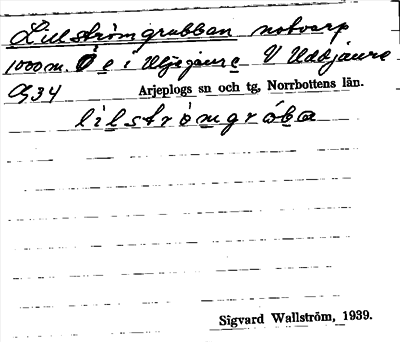 Lillströmgrubban notvarp
1000 m. Ö e i Uljejaure V Uddjaure
Arjeplogs sn och tg, Norrbottens län.
lilströmgróba
Sigvard Wallström, 1939.